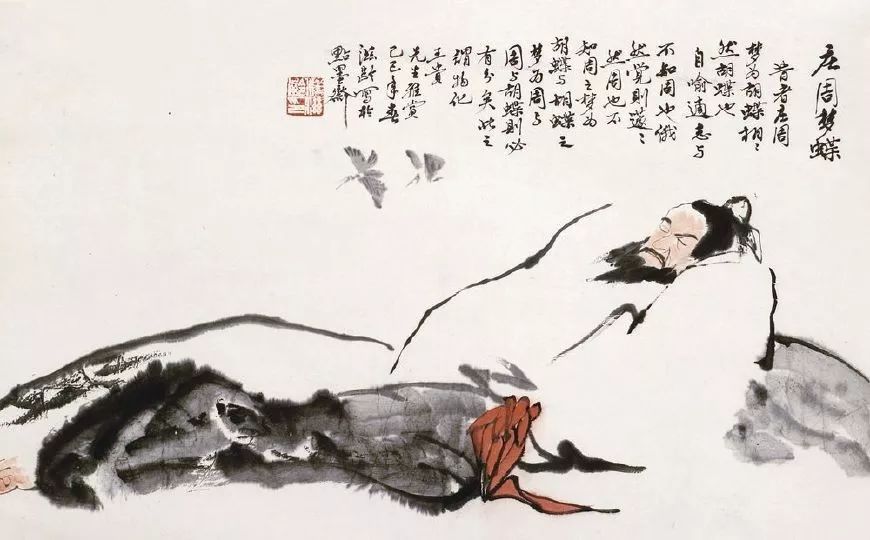 庄周梦蝶
昔者庄周
梦为胡蝶栩々
然胡蝶也
自喻適志与
不知周也俄
然觉则蘧々
然周也不
知周之梦为
胡蝶与胡蝶之
梦为周与
周与胡蝶则必
有分矣此之
谓物化
王贵
先生雅赏
己巳年春
写於
點墨斋